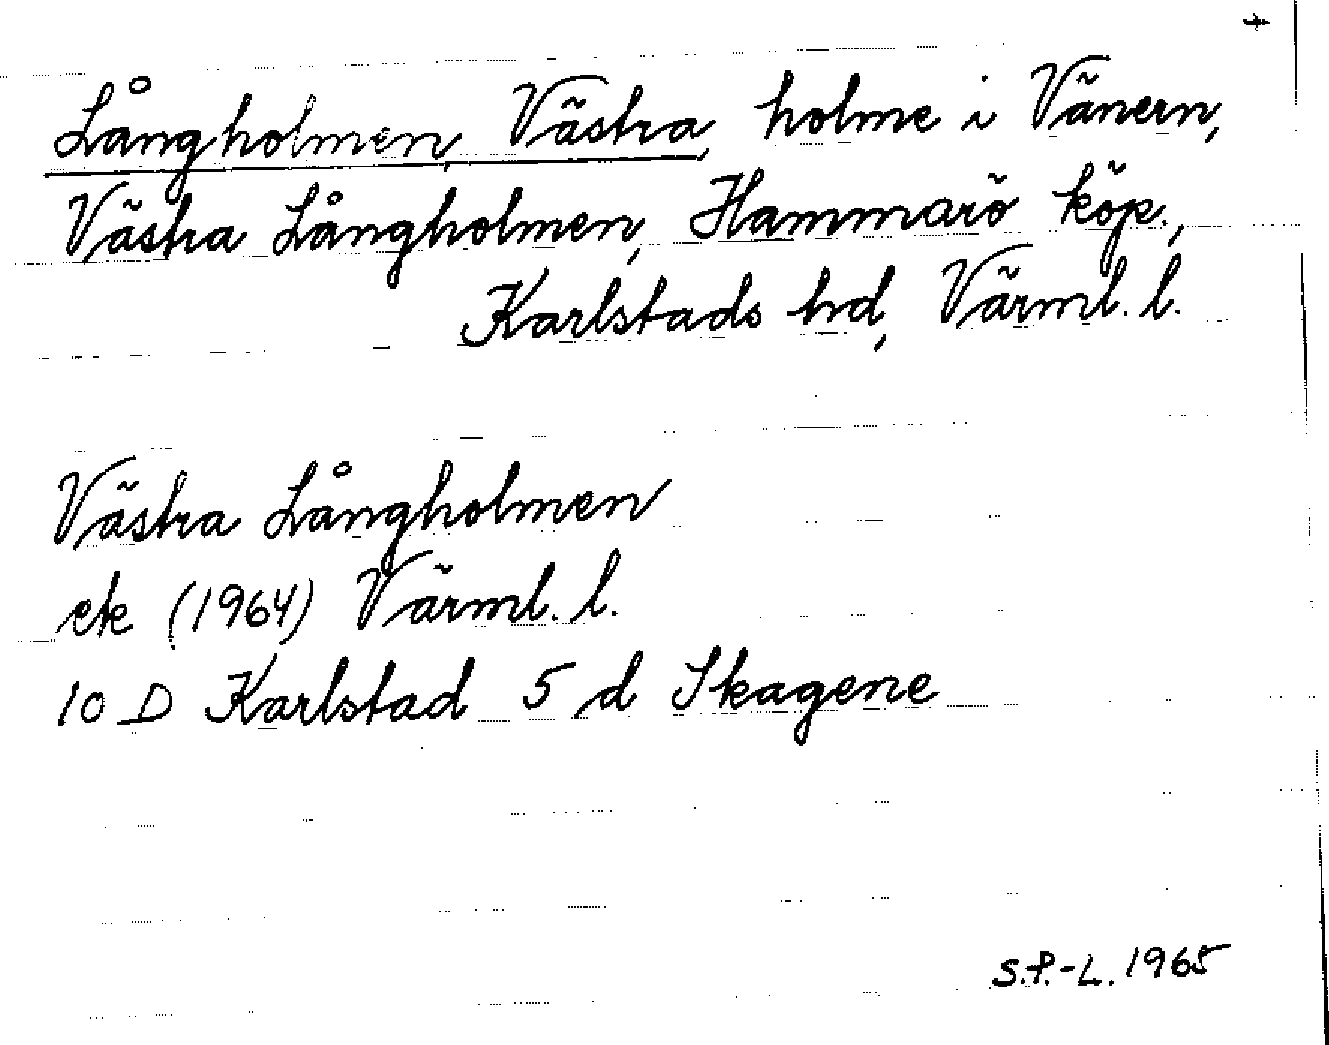 Långholmen, Västra, holme i Vänern,
Västra Långholmen, Hammarö köp.,
Karlstads hd, Värml. l.
Västra Långholmen
ek (1964) Värml. l.
10 D Karlstad 5 d Skagene
S.P.-L. 1965